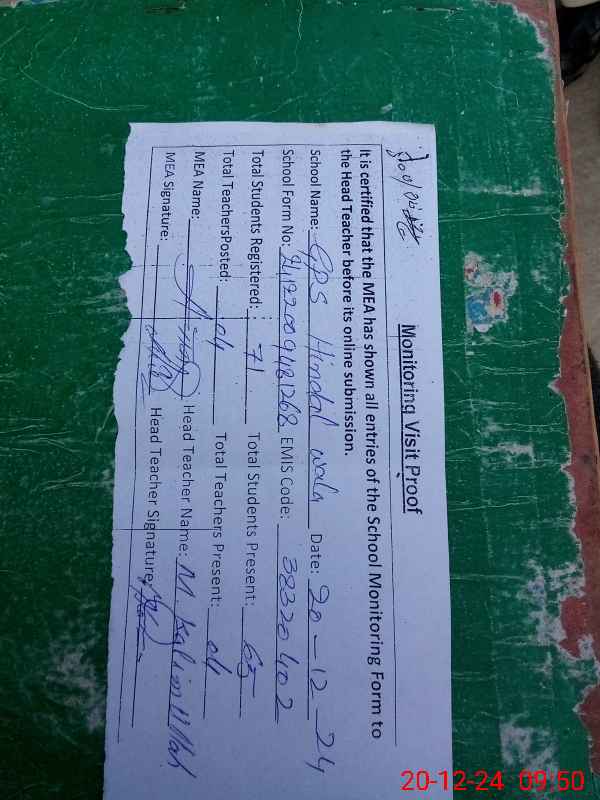 Monitoring Visit Proof
It is certified that the MEA has shown all entries of the School Monitoring Form to
the Head Teacher before its online submission.
School Name: GPS Hindal wala Date: 20-12-24
School Form No: EMIS Code: 38320402
Total Students Registered: 71 Total Students Present: 65
Total TeachersPosted: 04 Total Teachers Present: 04
MEA Name: Head Teacher Name: M Kalim Ullah
MEA Signature: Head Teacher Signature:
20-12-24 09:50